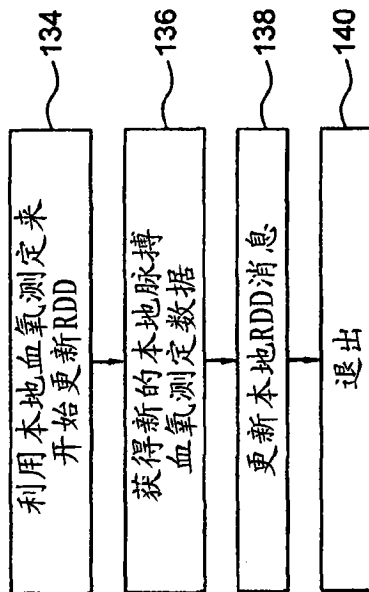 利用本地血氧测定来
开始更新RDD
134
获得新的本地脉搏
血氧测定数据
136
更新本地RDD消息
138
退出
140